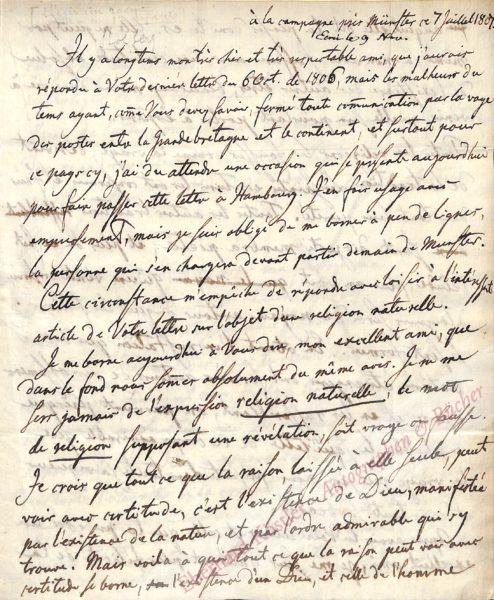 à la campagne près Münster ce 7 Juillet 1807.
le 9 Nov.
Il y a longtems mon très cher et très respectable ami, que j'aurois
répondu à Votre dernière lettre du 6 Oct. de 1806, mais les malheurs du
tems ayant, come Vous devez savoir, fermé toute comunication par la voye
des postes entre la Grande bretagne et le continent, et surtout pour
ce pays cy, j'ai du attendre une occasion qui se presente aujourdhui
pour faire passer cette lettre à Hambourg. J'en fais usage avec
empressement, mais je suis obligé de me borner à peu de lignes,
la personne qui s'en chargera devant partir demain de Munster.
Cette circonstance m'empêche de répondre avec loisir à l'intéressant
article de Votre lettre sur l'objet d'une religion naturelle.
Je me borne aujourdhui à Vous dire, mon excellent ami, que
dans le fond nous somes absolument du même avis. Je ne me
sers jamais de l'expression religion naturelle, le mot
de religion supposant une révélation, soit vraye ou fausse.
Je crois que tout ce que la raison laissée à elle seule, peut
voir avec certitude, c'est l'existence de Dieu, manifestée
par l'existence de la nature, et par l'ordre admirable qui s'y
trouve. Mais voila à quoi tout ce que la raison peut voir avec
certitude se borne, l'existence d'un Dieu, et celle de l'homme